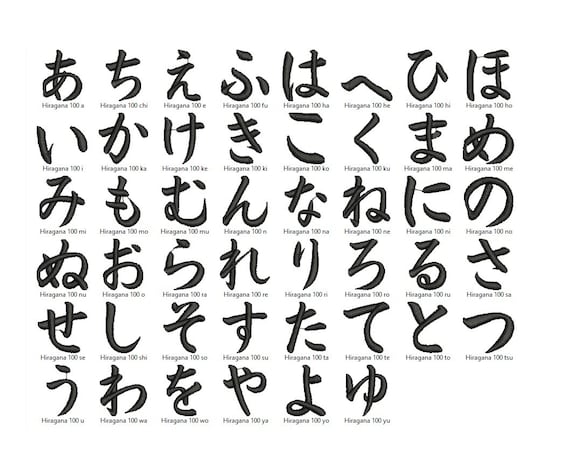 あ ち え ふ は へ ひ ほ
Hiragana 100 a Hiragana 100 chi Hiragana 100 e Hiragana 100 fu Hiragana 100 ha Hiragana 100 he Hiragana 100 hi Hiragana 100 ho
い か け き こ く ま め
Hiragana 100 i Hiragana 100 ka Hiragana 100 ke Hiragana 100 ki Hiragana 100 ko Hiragana 100 ku Hiragana 100 ma Hiragana 100 me
み も む ん な ね に の
Hiragana 100 mi Hiragana 100 mo Hiragana 100 mu Hiragana 100 n Hiragana 100 na Hiragana 100 ne Hiragana 100 ni Hiragana 100 no
ぬ お ら れ り ろ る さ
Hiragana 100 nu Hiragana 100 o Hiragana 100 ra Hiragana 100 re Hiragana 100 ri Hiragana 100 ro Hiragana 100 ru Hiragana 100 sa
せ し そ す た て と つ
Hiragana 100 se Hiragana 100 shi Hiragana 100 so Hiragana 100 su Hiragana 100 ta Hiragana 100 te Hiragana 100 to Hiragana 100 tsu
う わ を や よ ゆ
Hiragana 100 u Hiragana 100 wa Hiragana 100 wo Hiragana 100 ya Hiragana 100 yo Hiragana 100 yu